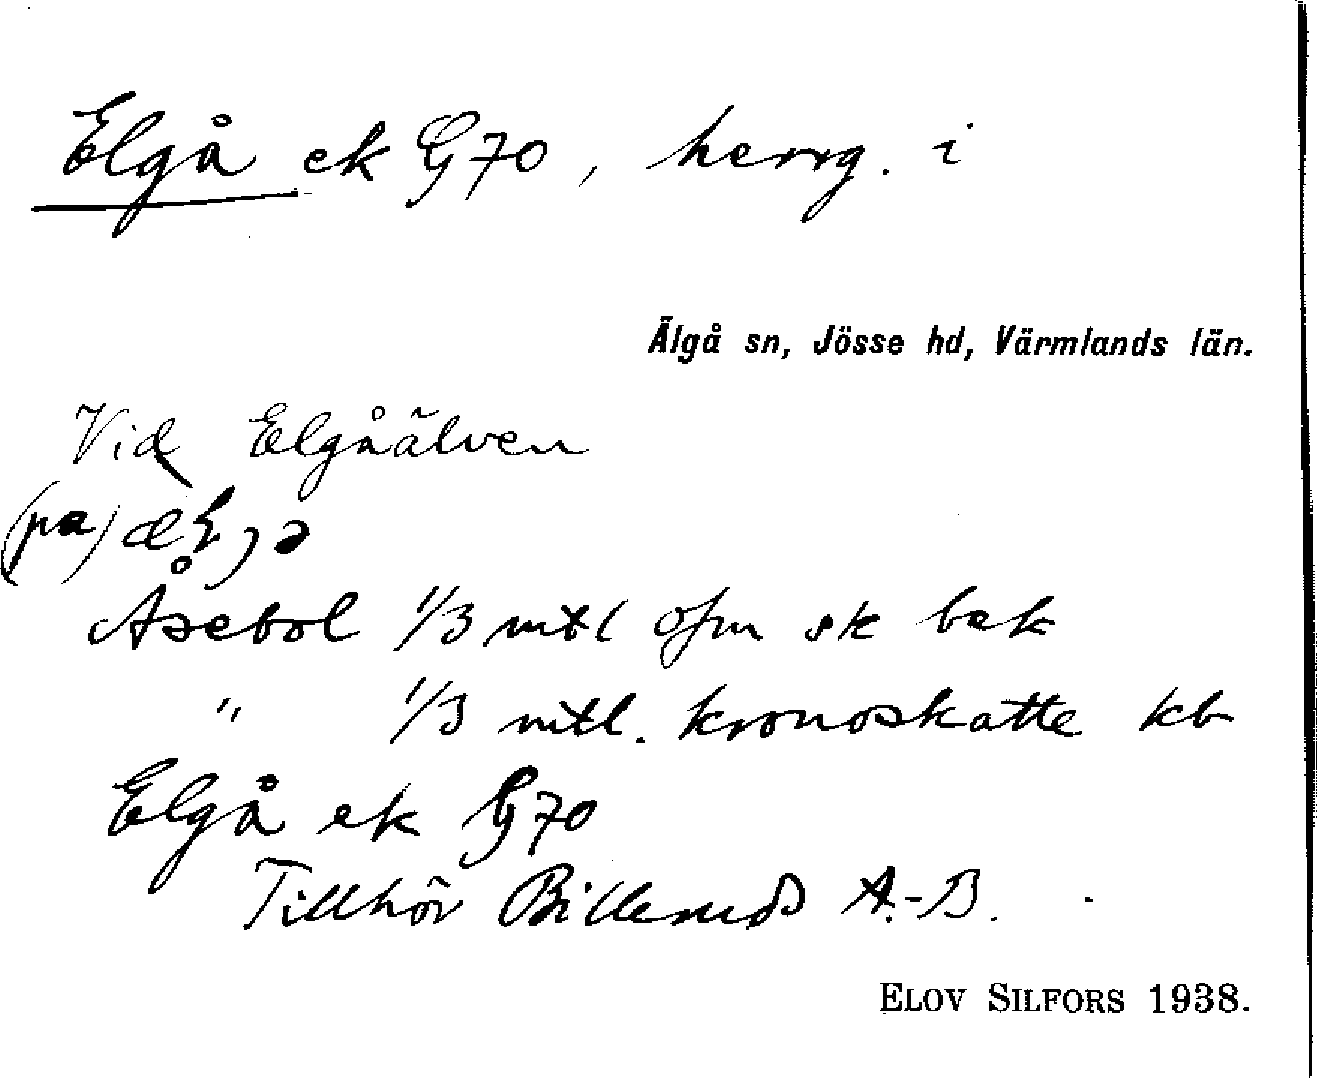 Elgå ek G70, herrg. i
Älgå sn, Jösse hd, Värmlands län.
Vid Elgåälven
(på)
Åsebol 1/3 mtl ofm sk bek
" 1/3 mtl. kronoskatte kb
Elgå ek G70
Tillhör Billeruds A.-B.
ELOV SILFORS 1938.